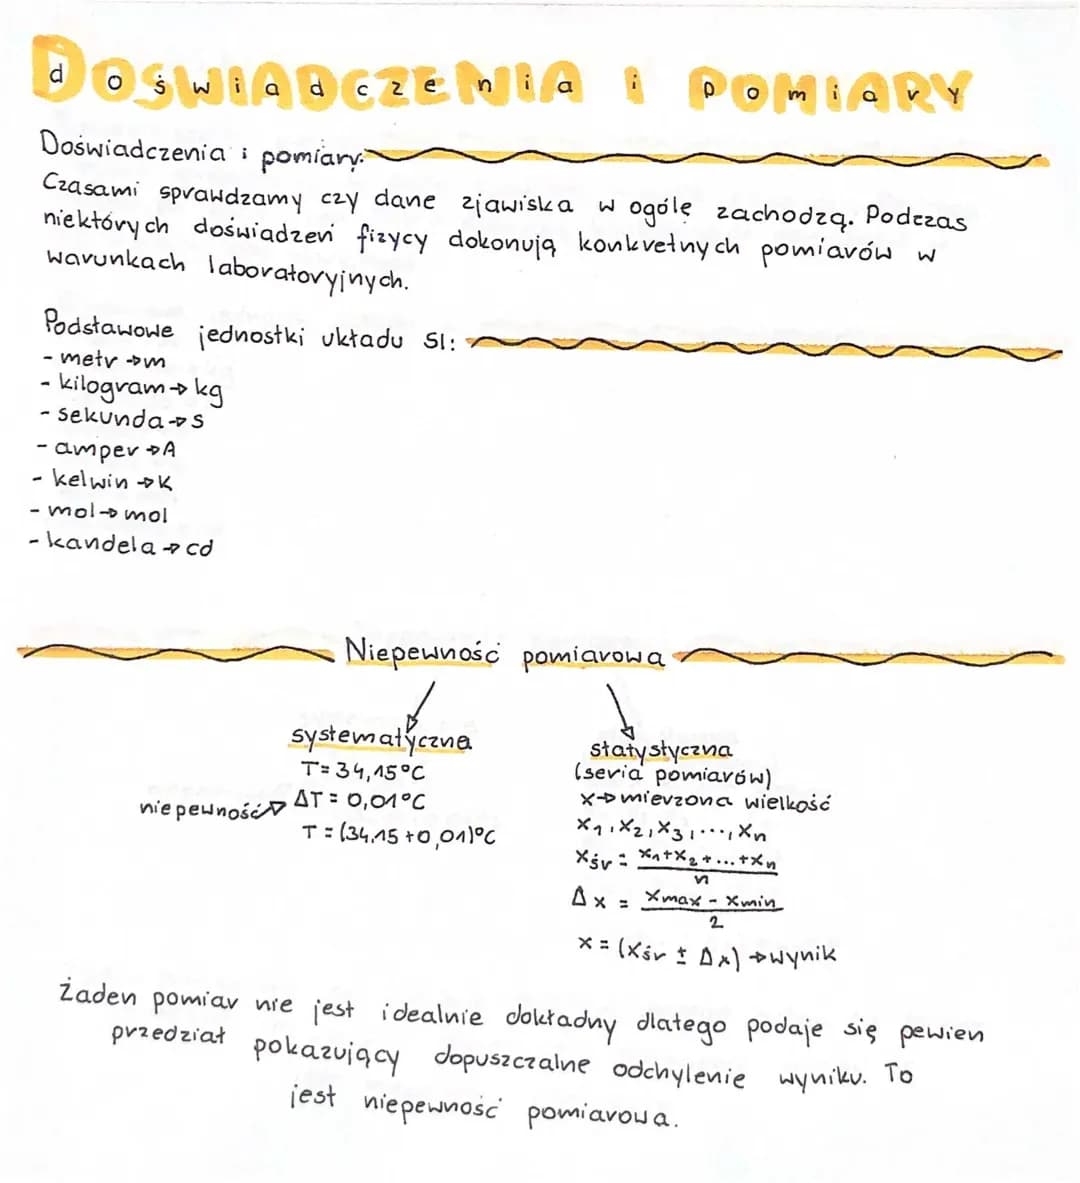 DOŚWIADCZENIA i POMIARY
doświadczenia i pomiary
Doświadczenia i pomiary:
Czasami sprawdzamy czy dane zjawiska w ogólę zachodzą. Podczas
niektórych doświadzeń fizycy dokonują konkretnych pomiarów w
warunkach laboratoryjnych.
Podstawowe jednostki układu SI:
- metr → m
- kilogram → kg
- sekunda → s
- amper → A
- kelwin → K
- mol → mol
- kandela → cd
Niepewność pomiarowa
systematyczna
T = 34,15°C
niepewność → ΔT = 0,01°C
T = (34,15 + 0,01)°C
statystyczna
(seria pomiarów)
x → mierzona wielkość
x₁, x₂, x₃, ..., xₙ
xśr = x₁+x₂+...+xₙ
n
Δx = xmax - xmin
2
x = (xśr ± Δx) → wynik
Żaden pomiar nie jest idealnie dokładny dlatego podaje się pewien
przedział pokazujący dopuszczalne odchylenie wyniku. To
jest niepewność pomiarowa.